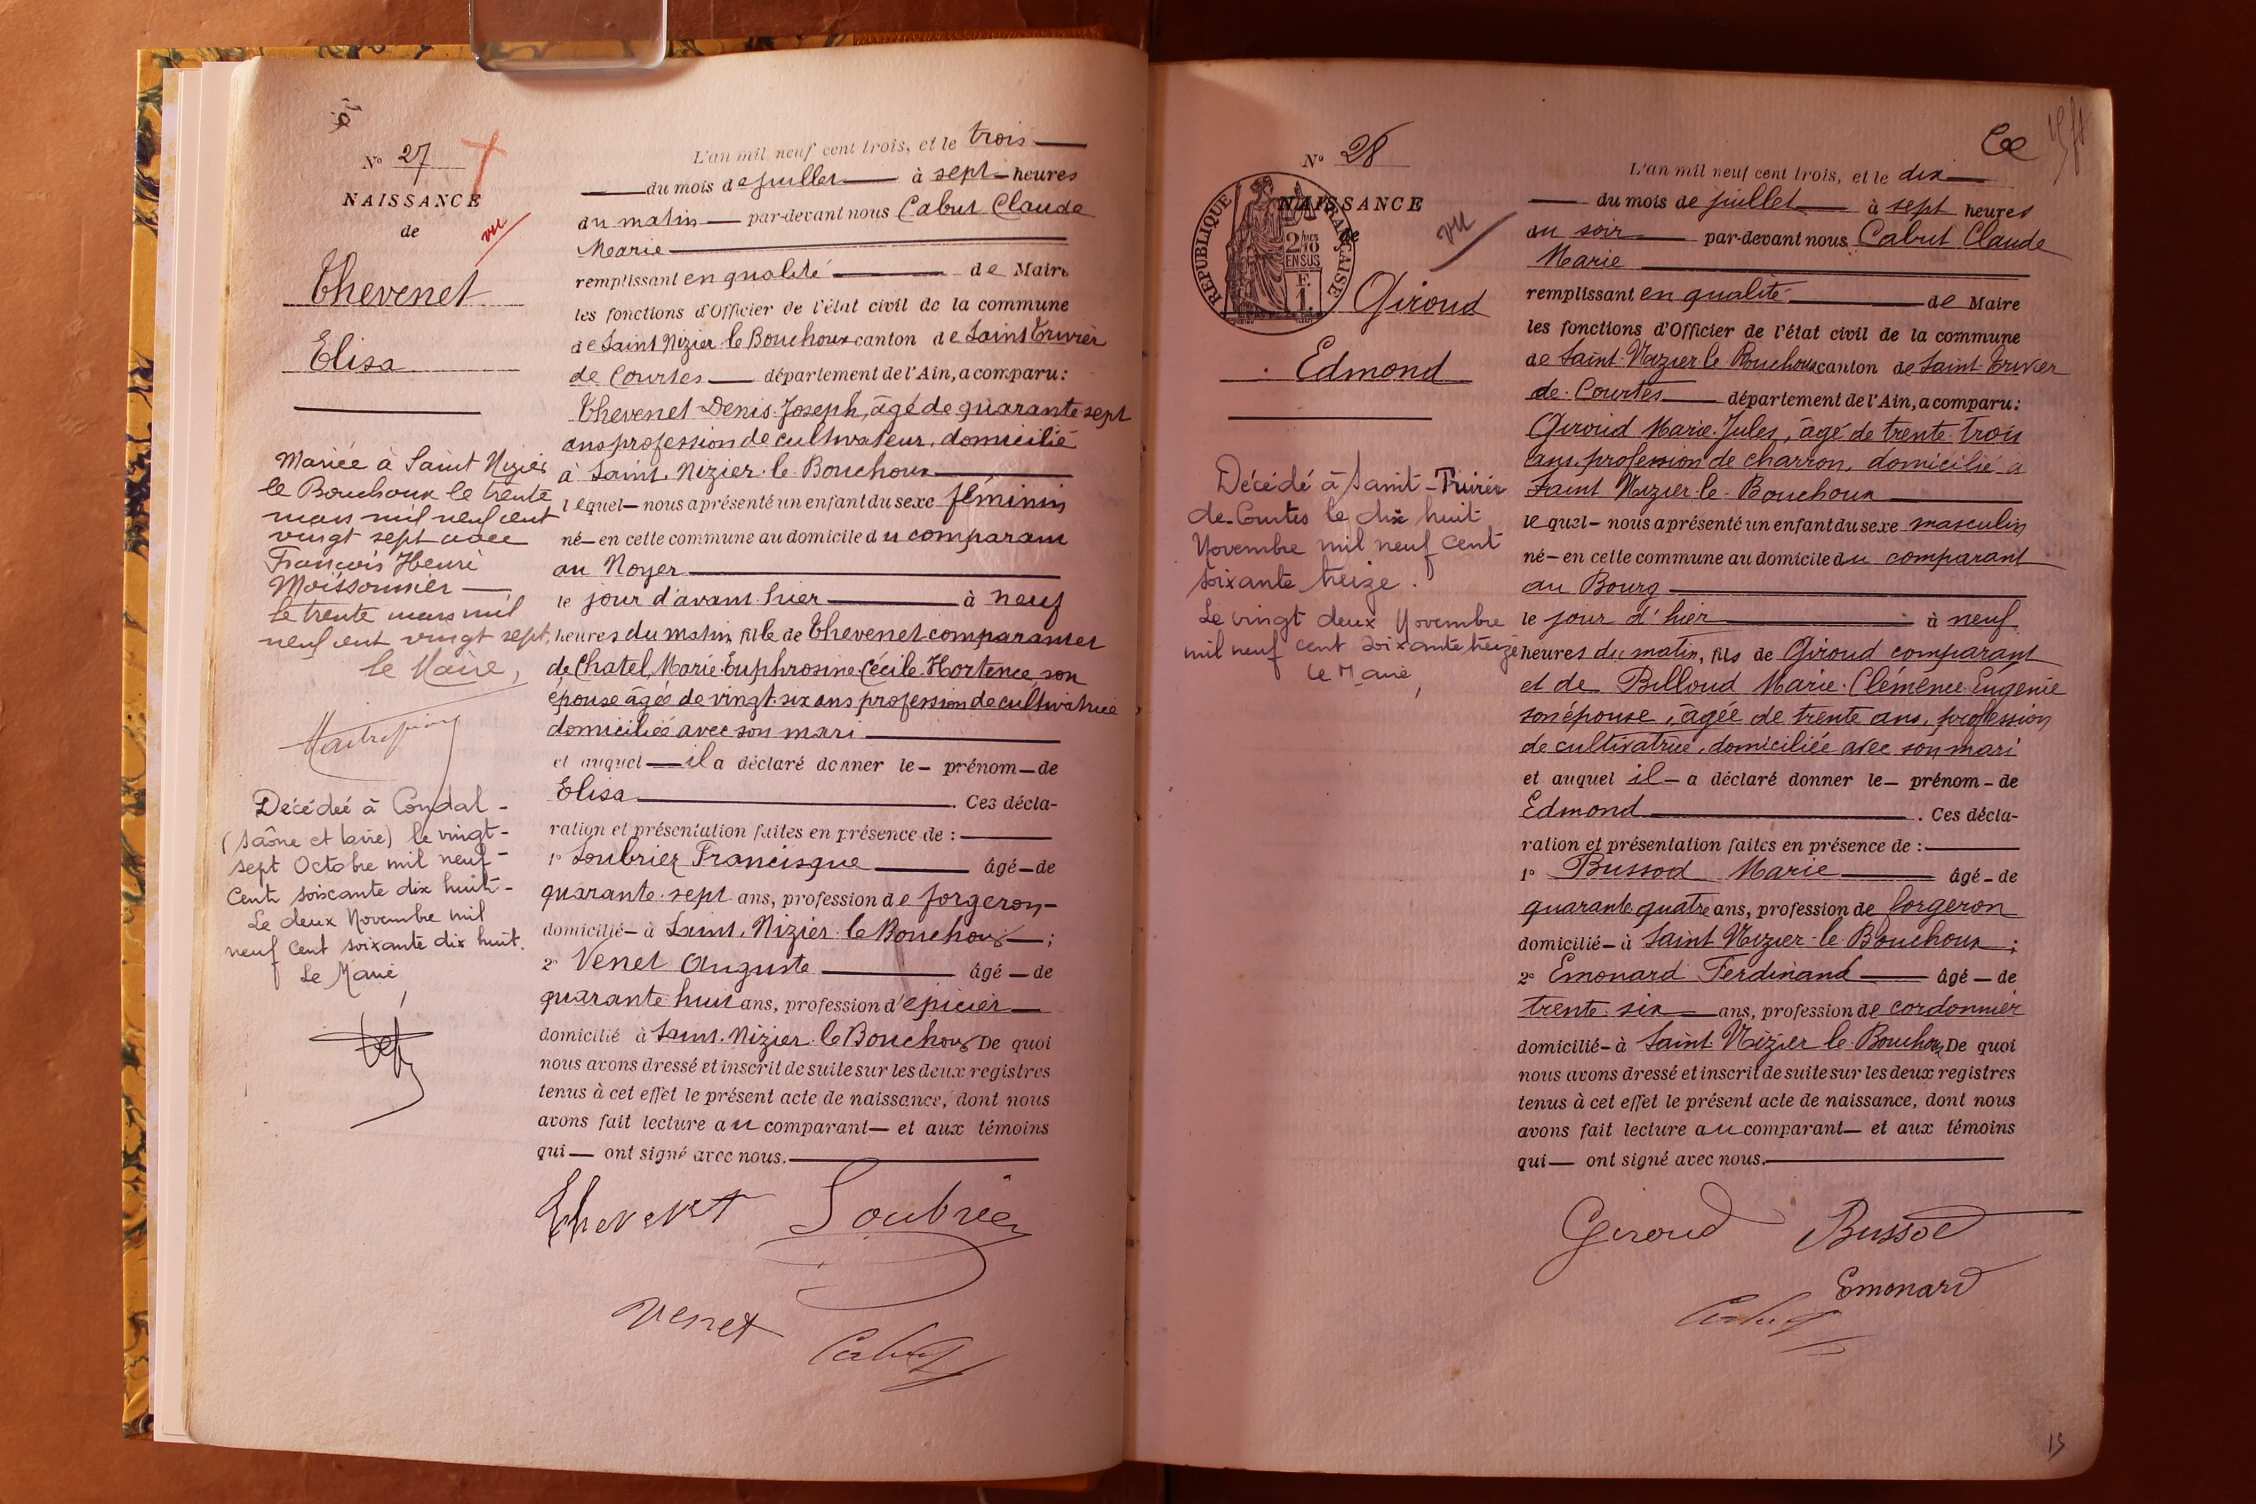 N° 27
NAISSANCE
de
vu
Thevenet
Elisa
Mariée à Saint Nizier
le Bouchoux le trente
mars mil neuf cent
vingt sept avec
François Henri
Moissonnier —
le trente mars mil
neuf cent vingt sept,
le Maire,
Décédée à Condal -
(Saône et Loire) le vingt-
sept Octobre mil neuf-
Cent soixante dix huit-
Le deux Novembre mil
neuf Cent soixante dix huit.
Le Maire,
L'an mil neuf cent trois, et le trois
du mois de juillet à sept heures
du matin par-devant nous Cabut Claude
Marie
remplissant en qualité de Maire
les fonctions d'Officier de l'état civil de la commune
de Saint Nizier le Bouchoux canton de Saint Trivier
de Courtes département de l'Ain, a comparu :
Thevenet Denis Joseph, âgé de quarante sept
ans profession de cultivateur, domicilié
à Saint Nizier le Bouchoux
lequel nous a présenté un enfant du sexe féminin
né en cette commune au domicile du comparant
au Noyer
le jour d'avant hier à neuf
heures du matin, fille de Thevenet comparant et
de Chatel Marie Euphrosine Cécile Hortence, son
épouse âgée de vingt-six ans profession de cultivatrice
domiciliée avec son mari
et auquel il a déclaré donner le prénom de
Elisa. Ces décla-
ration et présentation faites en présence de :
1° Soubrier Francisque âgé de
quarante sept ans, profession de forgeron
domicilié à Saint Nizier le Bouchoux ;
2° Venet Auguste âgé de
quarante huit ans, profession d'épicier
domicilié à Saint Nizier le Bouchoux De quoi
nous avons dressé et inscrit de suite sur les deux registres
tenus à cet effet le présent acte de naissance, dont nous
avons fait lecture au comparant et aux témoins
qui ont signé avec nous.
Thevenet Soubrier
Venet Cabut
N° 28
NAISSANCE
de
vu
RÉPUBLIQUE FRANÇAISE
EN SUS
F.
1.
Giroud
Edmond
Décédé à Saint-Trivier
de-Courtes le dix huit
Novembre mil neuf Cent
soixante treize.
Le vingt deux Novembre
mil neuf cent soixante treize
Le Maire,
L'an mil neuf cent trois, et le dix
du mois de juillet à sept heures
du soir par-devant nous Cabut Claude
Marie
remplissant en qualité de Maire
les fonctions d'Officier de l'état civil de la commune
de Saint Nizier le Bouchoux canton de Saint Trivier
de Courtes département de l'Ain, a comparu :
Giroud Marie Jules, âgé de trente trois
ans, profession de charron, domicilié à
Saint Nizier le Bouchoux
lequel nous a présenté un enfant du sexe masculin
né en cette commune au domicile du comparant
au Bourg
le jour d'hier à neuf
heures du matin, fils de Giroud comparant
et de Billoud Marie Clémence Eugénie
son épouse, âgée de trente ans, profession
de cultivatrice, domiciliée avec son mari
et auquel il a déclaré donner le prénom de
Edmond. Ces décla-
ration et présentation faites en présence de :
1° Bussod Marie âgé de
quarante quatre ans, profession de forgeron
domicilié à Saint Nizier le Bouchoux ;
2° Emonard Ferdinand âgé de
trente six ans, profession de cordonnier
domicilié à Saint Nizier le Bouchoux De quoi
nous avons dressé et inscrit de suite sur les deux registres
tenus à cet effet le présent acte de naissance, dont nous
avons fait lecture au comparant et aux témoins
qui ont signé avec nous.
Giroud Bussod
Emonard
Cabut